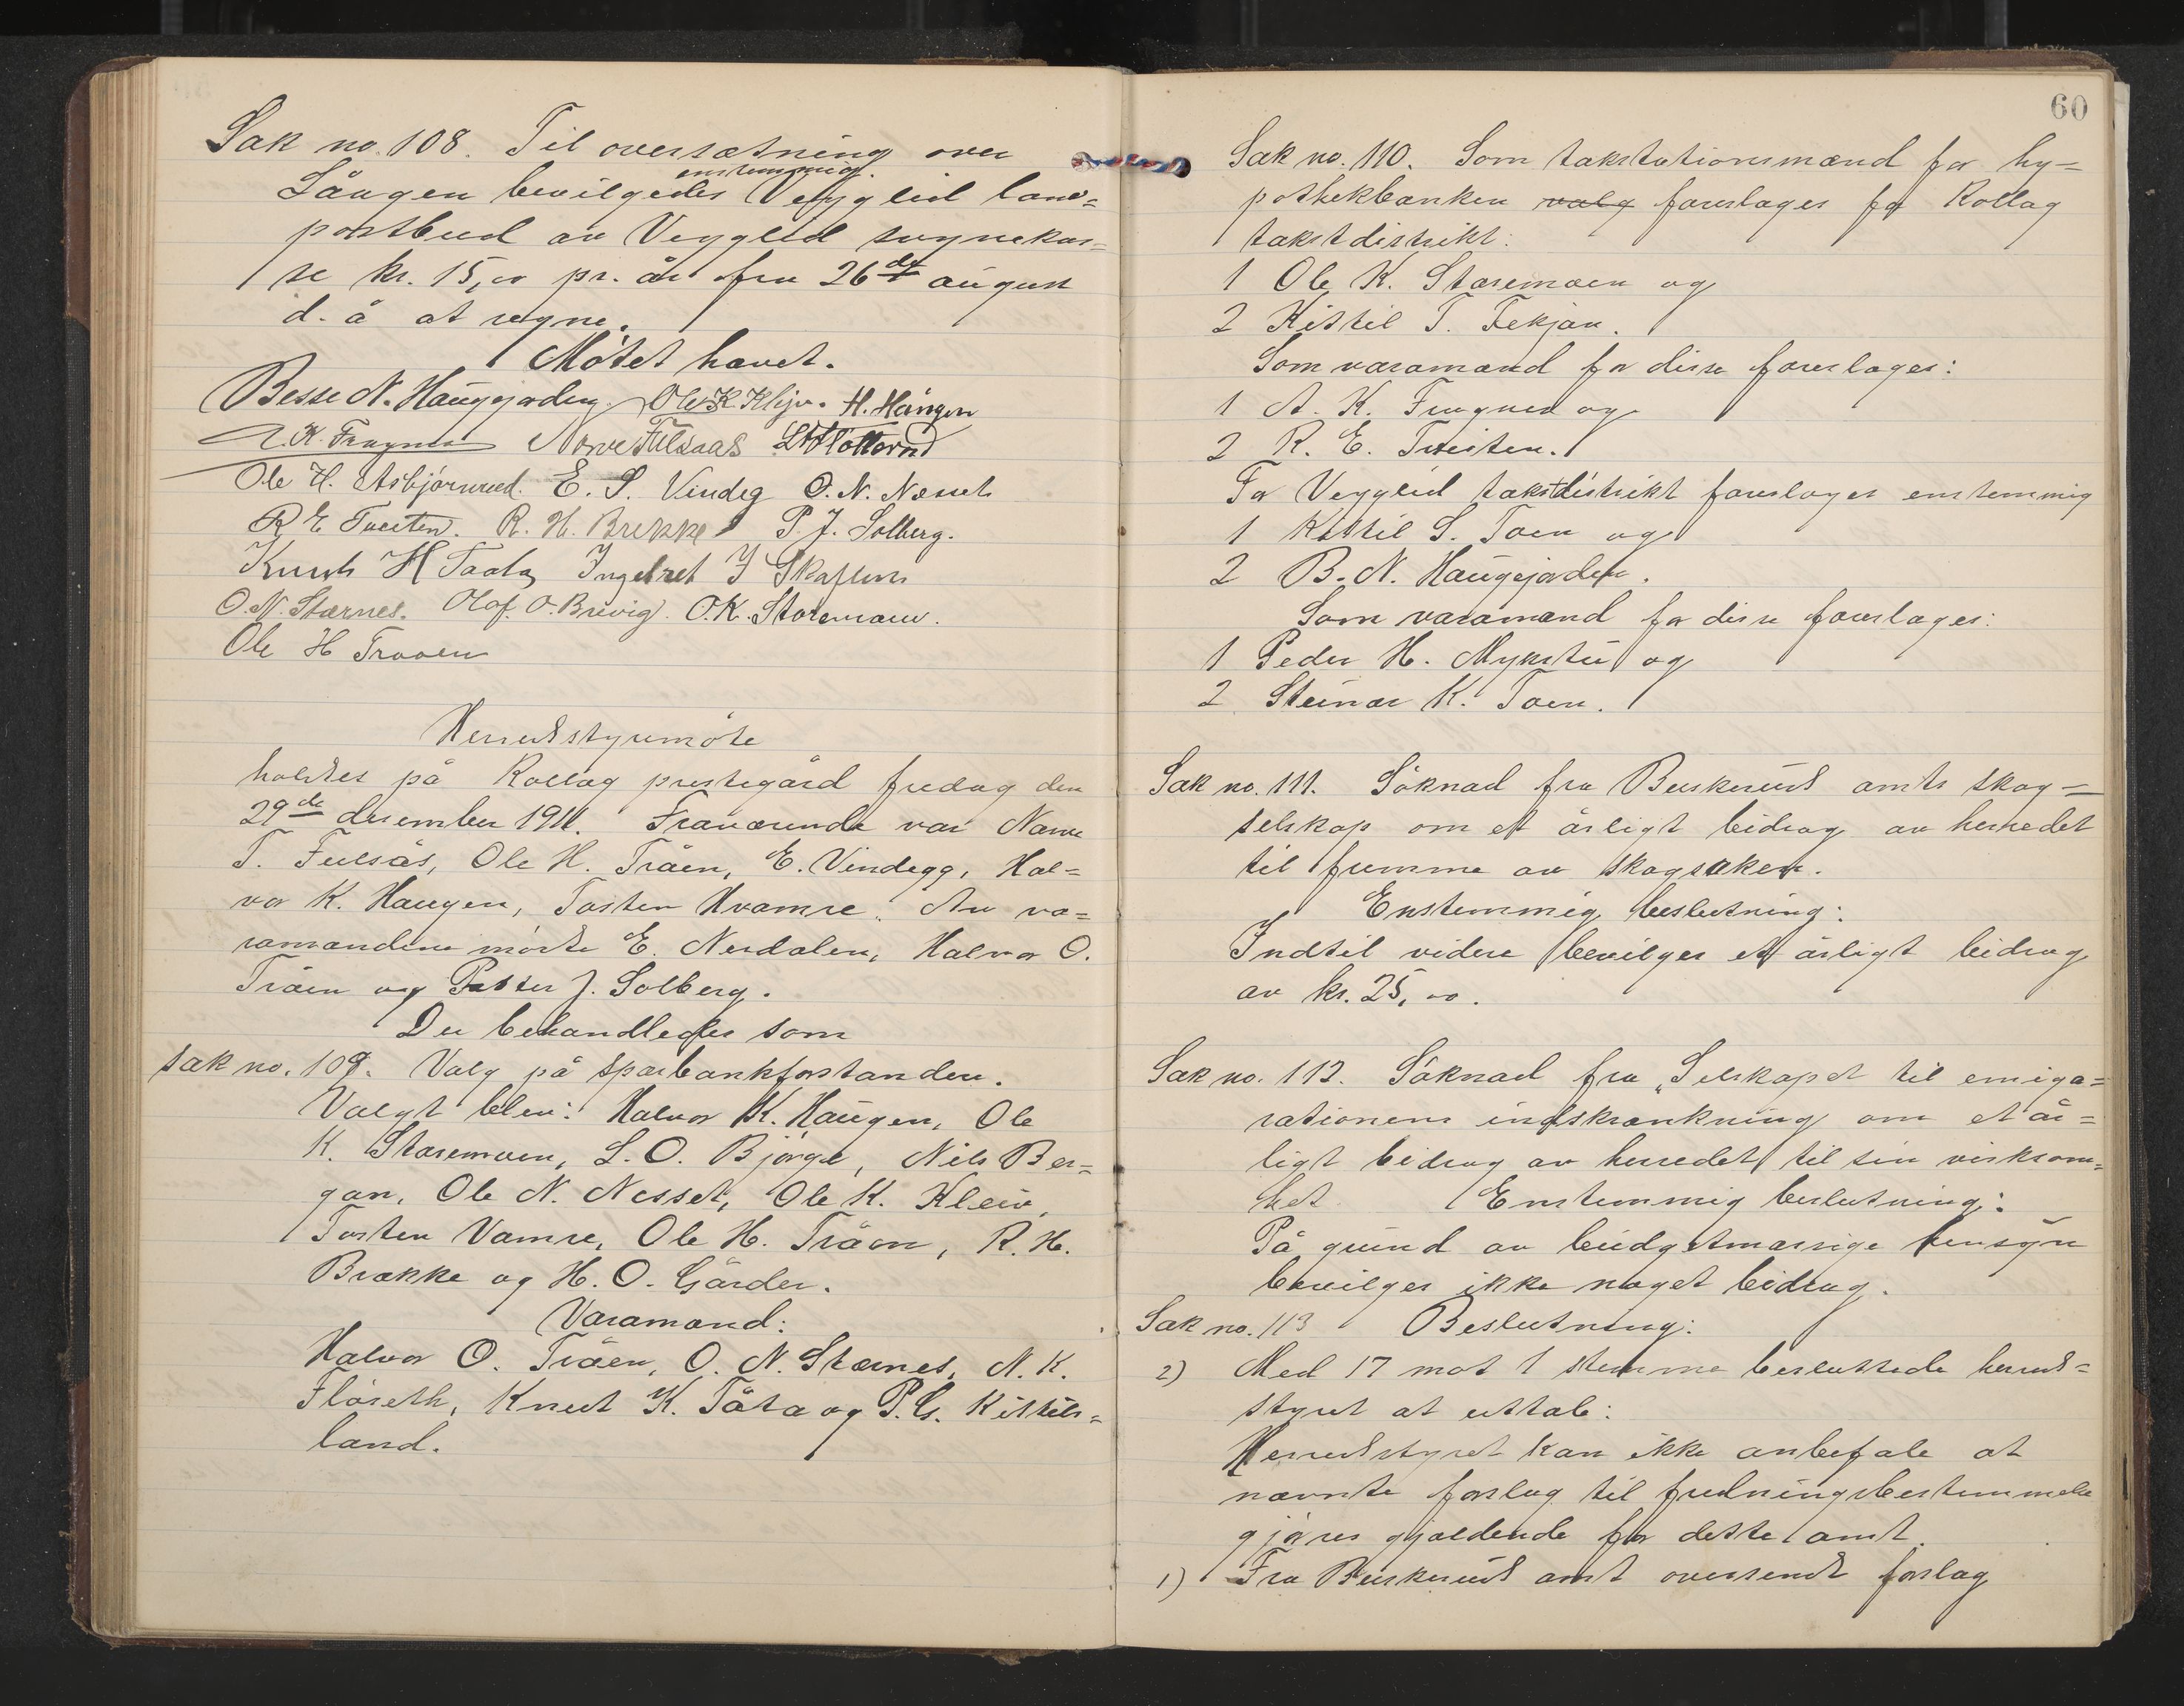 Sak no. 108. Til oversætning over
enstemmig
Lågen bevilgedes Vegglid land=
postbud av Vegglid sognekas=
se kr. 15,00 pr. år fra 26de august
d. å at regne.
Møtet hævet.
Besse N. Haugejorden. Ole K. Kleiv. H. Haugen
K. Frygne Narve Fulsaas
Ole H. Asbjörnrud. E. S. Vindeg O. N. Næset
R E Tveiten. R. H. Brekke P. J. Solberg.
Knut H Taata Ingebret J Skaflem
O. N. Stærnes. Olaf. O. Brevig. O. K. Storemoen.
Ole H Traaen
Herredsstyremöte
holdtes på Rollag prestegård fredag den
29de desember 1911. Fraværende var Narve
T. Fulsås, Ole H. Tråen, E. Vindegg, Hal=
vor K. Haugen, Tosten Hvamre. Av va=
ramændene møtte E. Nerdalen, Halvor O.
Tråen og Petter J. Solberg.
Der behandledes som
sak no. 109. Valg på sparbankforstandere.
Valgt blev: Halvor K. Haugen, Ole
K. Staremoen, L. O. Bjørge, Nils Ber=
gan, Ole N. Nesset, Ole K. Kleiv,
Tosten Vamre, Ole H. Tråen, R. H.
Brække og H. O. Gårder.
Varamænd:
Halvor O. Tråen, O. N. Stærnes, N. K.
Flåseth, Knut K. Tåta og P. G. Kittils=
land.
60
Sak no. 110. Som takstationsmænd for hy=
pothekbanken valg foreslages for Rollag
takstdistrikt:
1 Ole K. Staremoen og
2 Kittil T. Fekjan.
Som varamænd for disse foreslages:
1 A. K. Frygne og
2 R. E. Tveiten.
For Vegglid takstdistrikt foreslages enstemmig
1 Kittil S. Toen og
2 B. N. Haugejorden.
Som varamænd for disse foreslages:
1 Peder H. Mykstu og
2 Steinar K. Toen.
Sak no. 111. Söknad fra Buskerud amts skog=
selskap om et årligt bidrag av herredet
til fremme av skogsaken.
Enstemmig beslutning:
Indtil videre bevilges et årligt bidrag
av kr. 25,00.
Sak no. 112. Söknad fra „Selskapet til emigra=
rationens indskrænkning om et år=
ligt bidrag av herredet til sin virksom=
het Enstemmig beslutning:
På grund av budgetmæssige hensyn
bevilges ikke noget bidrag.
Sak no. 113 Beslutning:
2) Med 17 mot 1 stemme besluttede herreds=
styret at uttale:
Herredsstyret kan ikke anbefale at
nævnte forslag til fredningsbestemmelse
gjøres gjældende for dette amt.
1) Fra Buskerud amt oversendt forslag